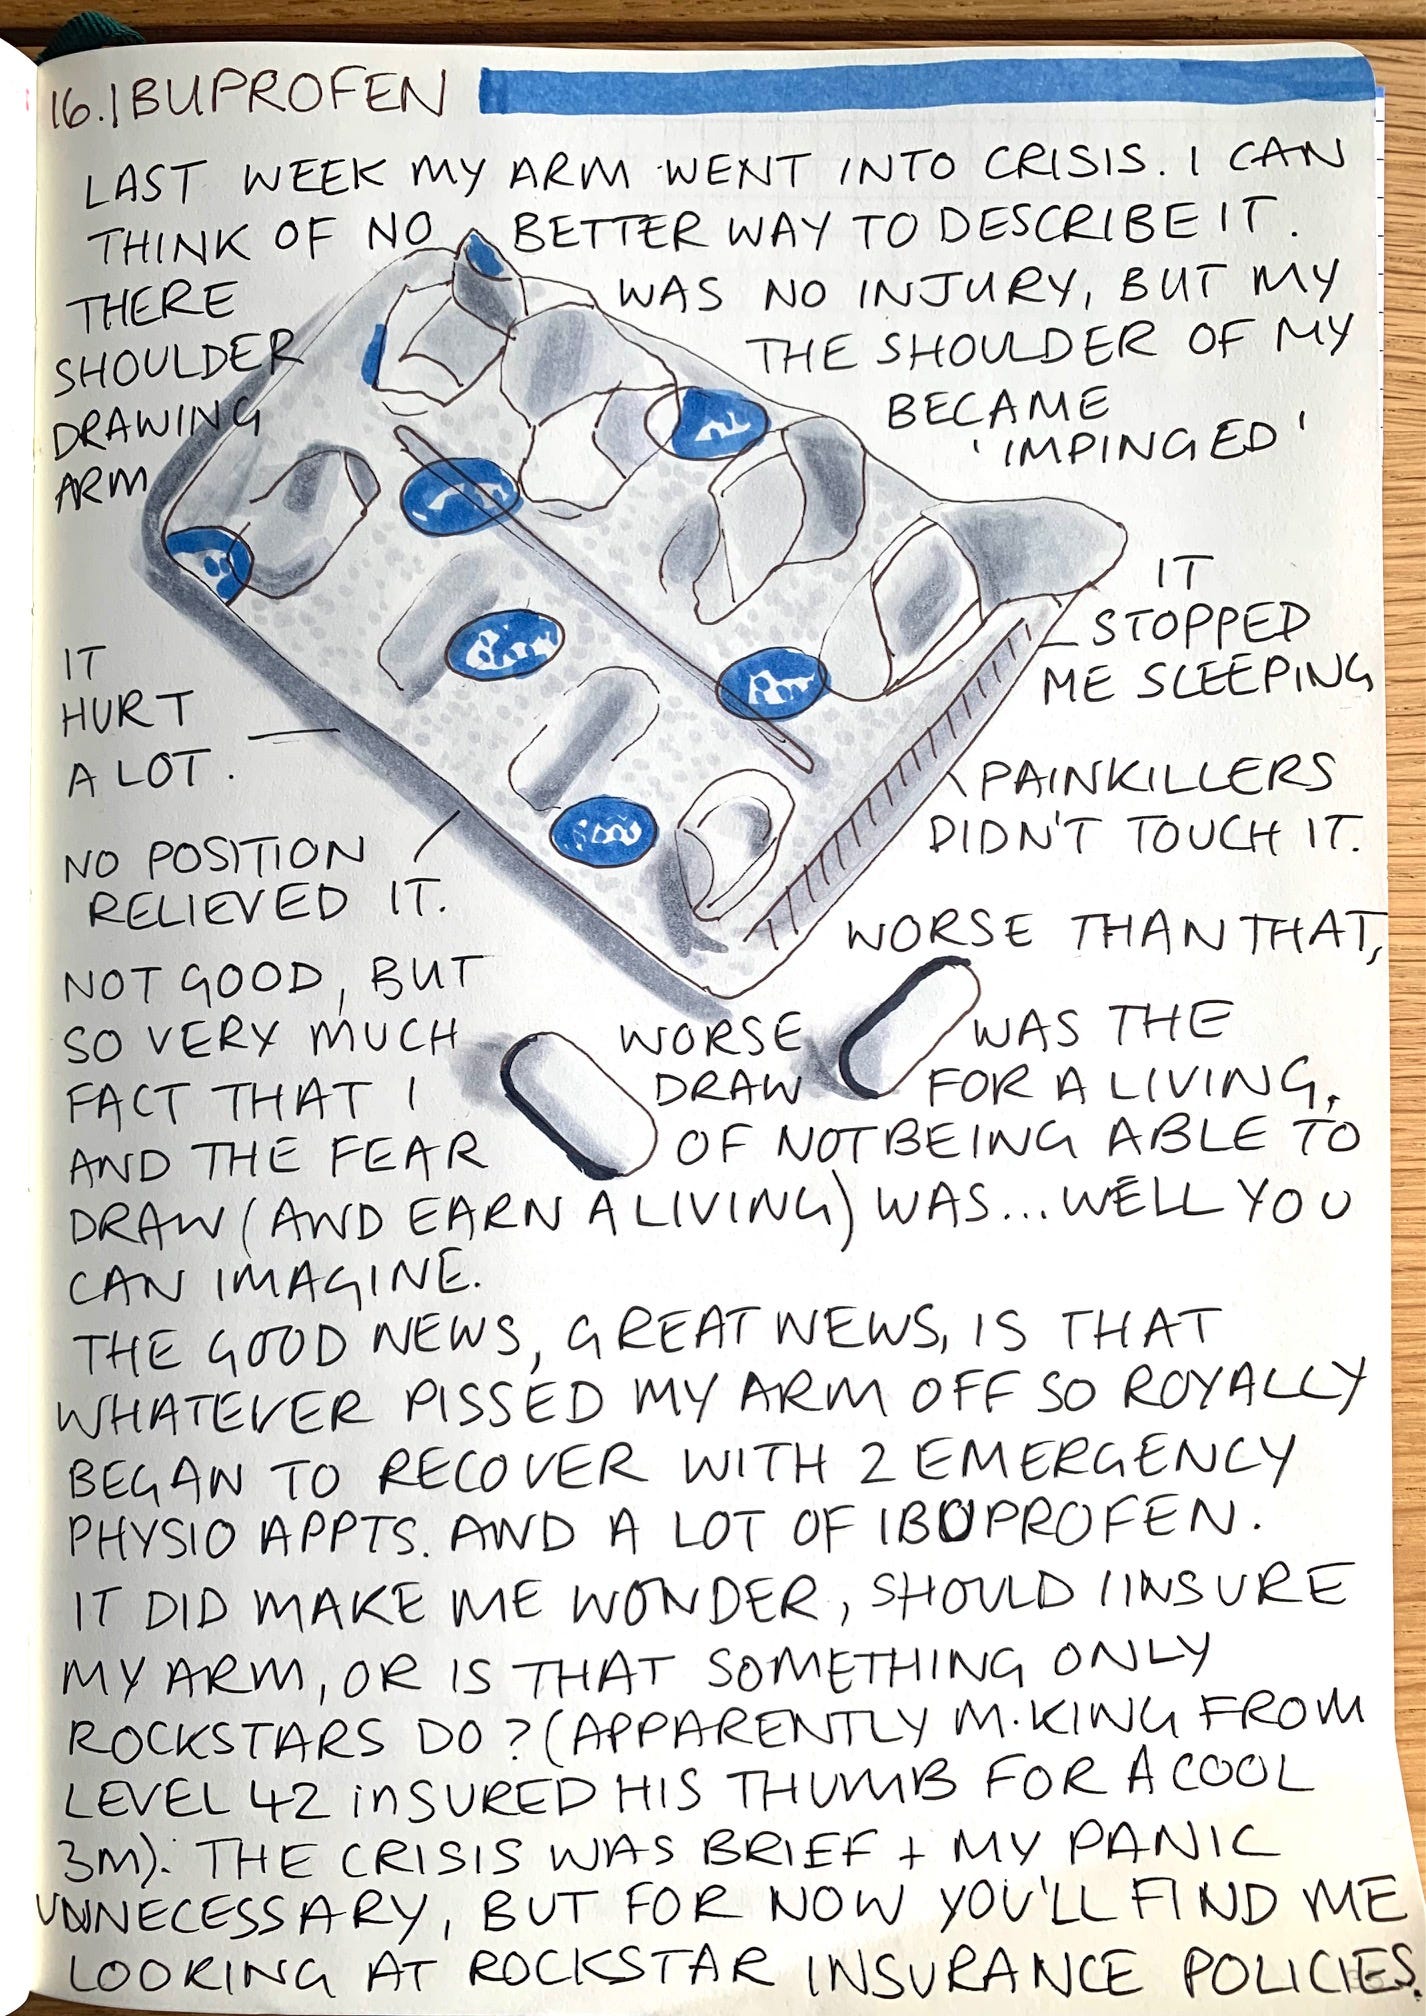 16. IBUPROFEN
LAST WEEK MY ARM WENT INTO CRISIS. I CAN
THINK OF NO BETTER WAY TO DESCRIBE IT.
THERE WAS NO INJURY, BUT MY
SHOULDER THE SHOULDER OF MY
DRAWING BECAME
ARM 'IMPINGED'
IT
HURT
A LOT.
IT
STOPPED
ME SLEEPING
PAINKILLERS
DIDN'T TOUCH IT.
NO POSITION
RELIEVED IT.
WORSE THAN THAT,
NOT GOOD, BUT
SO VERY MUCH WORSE WAS THE
FACT THAT I DRAW FOR A LIVING,
AND THE FEAR OF NOT BEING ABLE TO
DRAW (AND EARN A LIVING) WAS... WELL YOU
CAN IMAGINE.
THE GOOD NEWS, GREAT NEWS, IS THAT
WHATEVER PISSED MY ARM OFF SO ROYALLY
BEGAN TO RECOVER WITH 2 EMERGENCY
PHYSIO APPTS. AND A LOT OF IBUPROFEN.
IT DID MAKE ME WONDER, SHOULD I INSURE
MY ARM, OR IS THAT SOMETHING ONLY
ROCKSTARS DO? (APPARENTLY M. KING FROM
LEVEL 42 INSURED HIS THUMB FOR A COOL
3M). THE CRISIS WAS BRIEF + MY PANIC
UNNECESSARY, BUT FOR NOW YOU'LL FIND ME
LOOKING AT ROCKSTAR INSURANCE POLICIES.